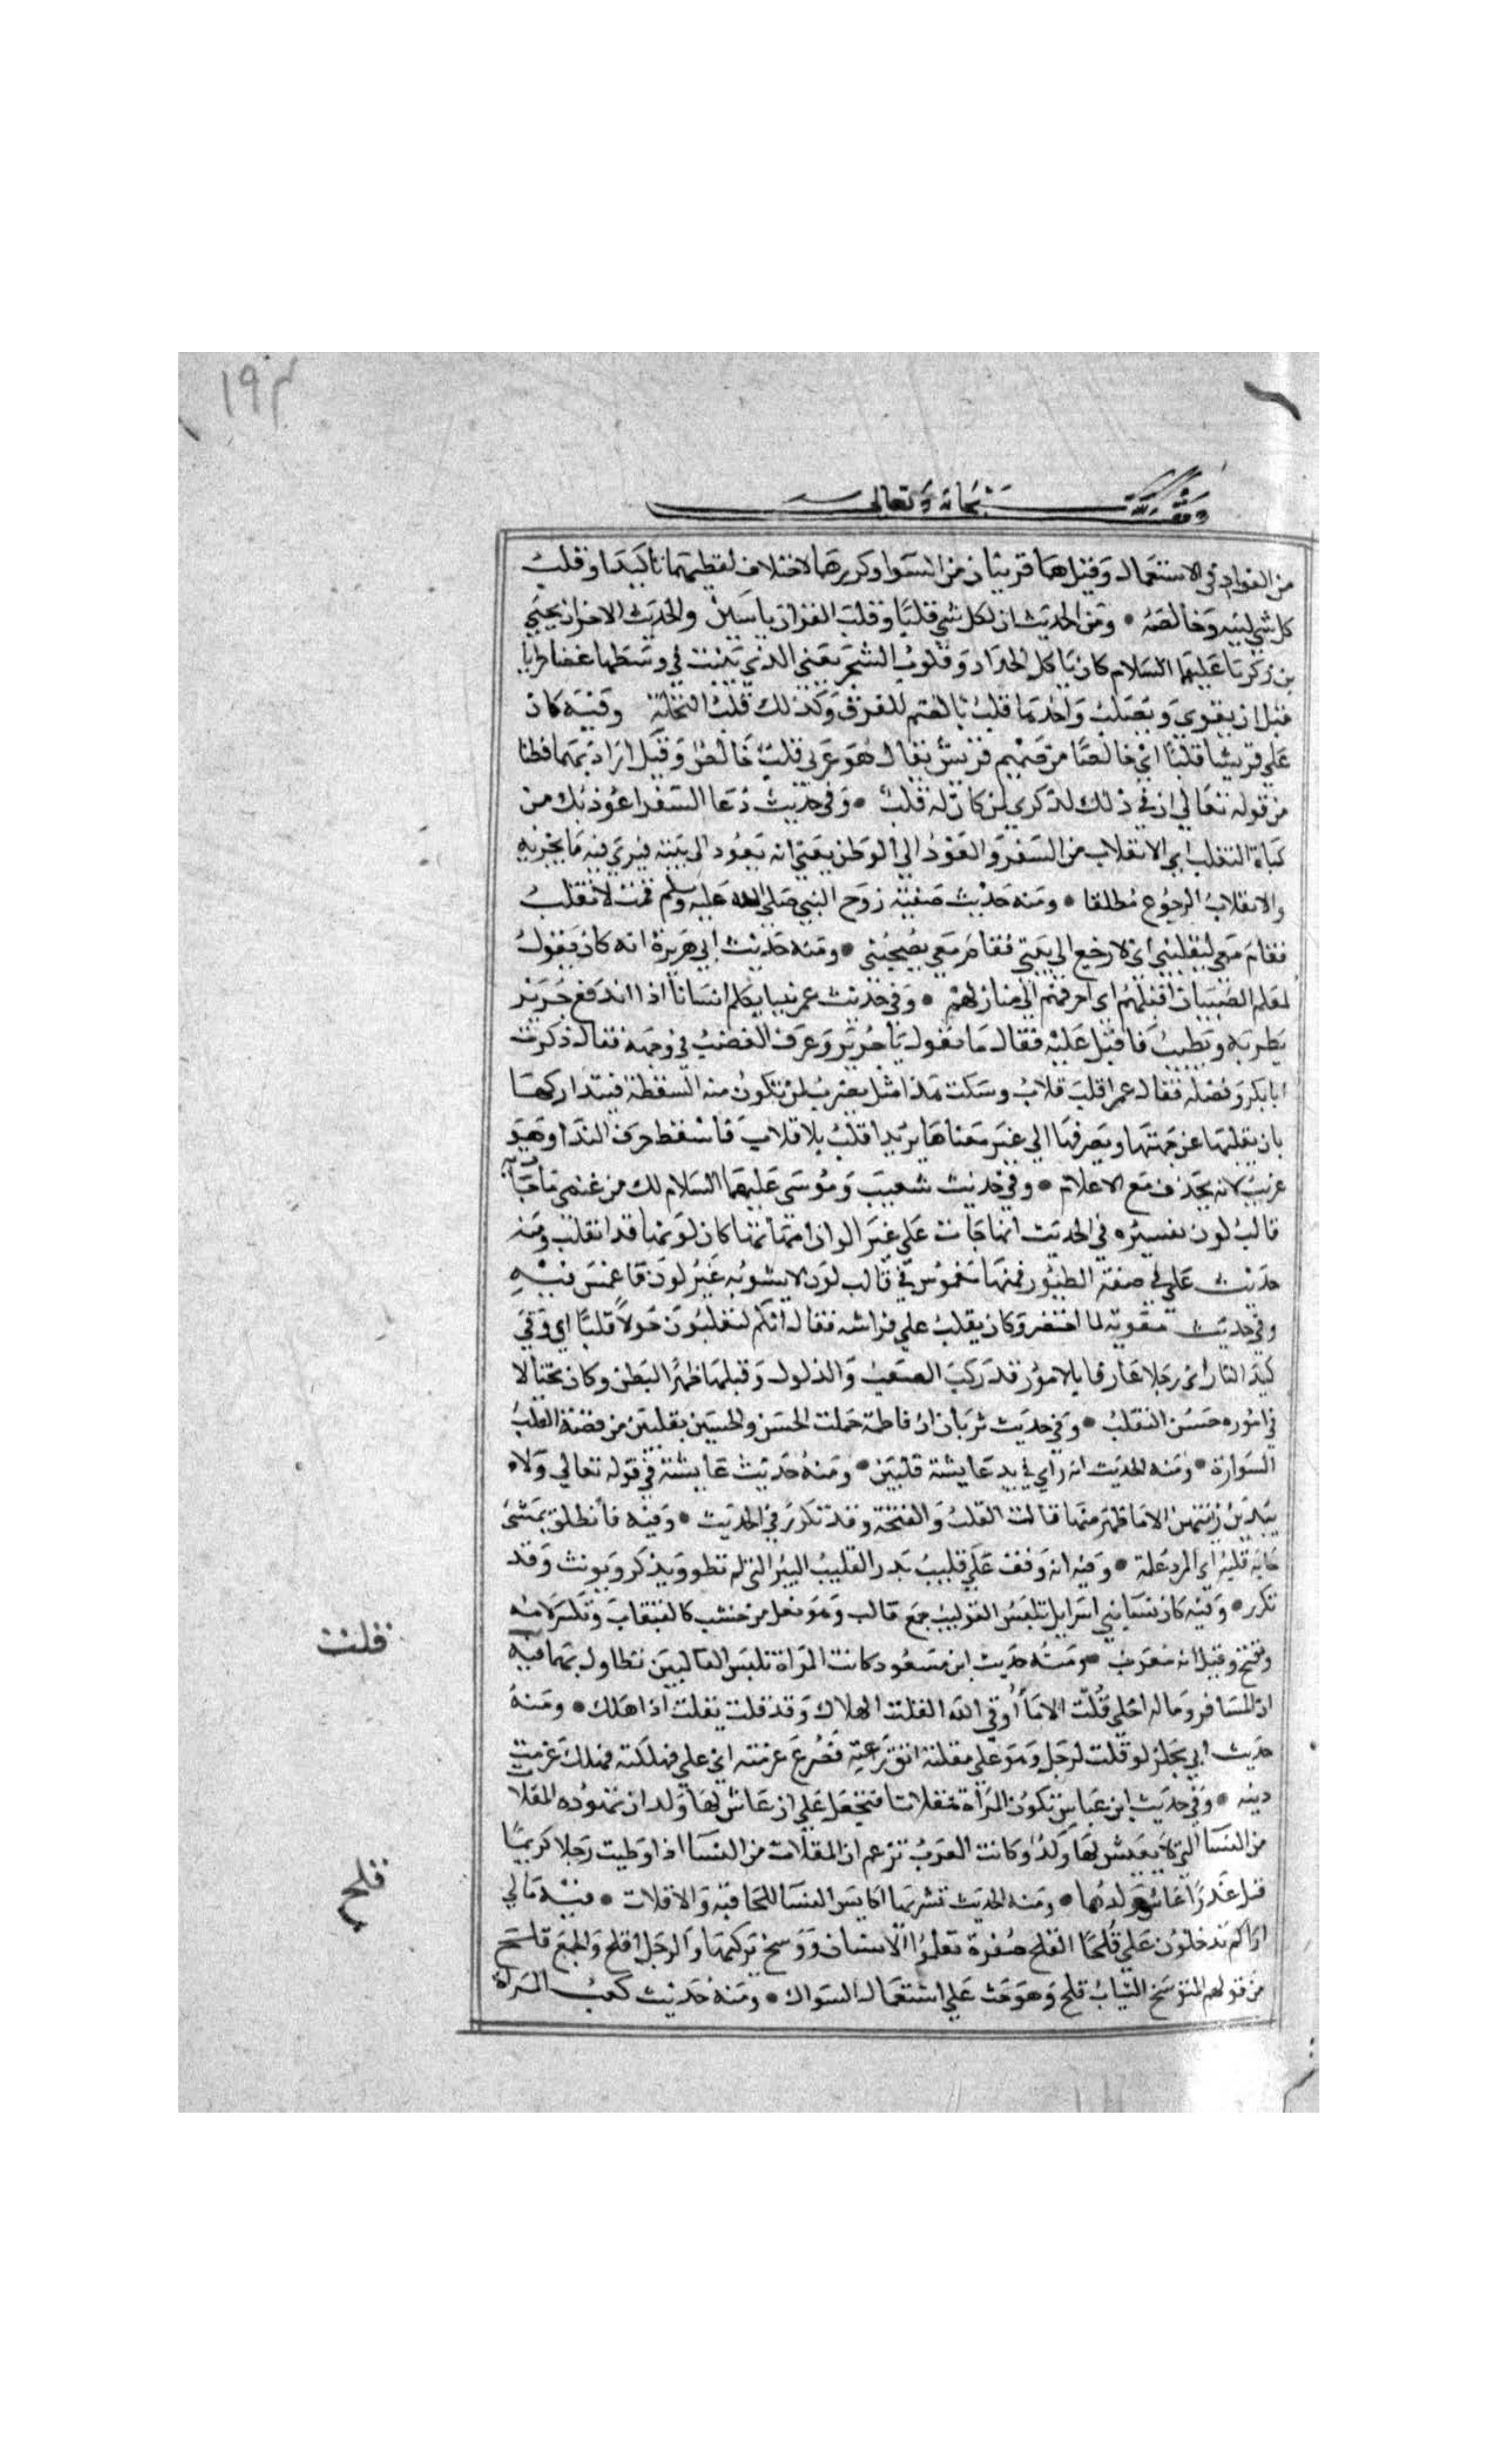 ١٩٣
وقف لله سبحانه وتعالى
من الفواد في الاستعمال وقيل هما قريبان من السوا وكررهما لاختلاف لفظيهما تاكيدا وقلب
كل شي لبه وخالصه • ومن الحديث ان لكل شي قلبا وقلب القران ياسين والحديث الاخر ان يحيي
بن زكريا عليهما السلام كان ياكل الجراد وقلوب الشجر يعني الذي ينبت في وسطها غضا طريا
قبل ان يقوي ويصلب واحدها قلب بالضم للفرق وكذلك قلب النخلة وفيه كان
علي قريشا قلبا اي خالصا من صميم قريش يقال هو عربي قلب خالص وقيل اراد بهما فطنا
من قوله تعالي ان في ذلك لذكري لمن كان له قلب • وفي حديث دعا السفر اعوذ بك من
كاة المنقلب اي الانقلاب من السفر والعود الي الوطن يعني انه يعود الي بيته فيري فيه ما يحزنه
والانقلاب الرجوع مطلقا • ومنه حديث صفية زوج النبي صلى الله عليه وسلم قمت لانقلب
فقام معي ليقلبني اي لارجع الي بيتي فقام معي يصحبني • ومنه حديث ابي هريرة انه كان يقول
لمعلم الصبيان اقلبهم اي اصرفهم الي منازلهم • وفي حديث عمر بينا يكلم انسانا اذا اندفع جرير
يطريه ويطيب فاقبل عليه فقال ما تقول يا جرير وعرف الغضب في وجهه فقال ذكرت
ابا بكر وفضله فقال عمر اقلب قلاب وسكت هذا مثل يضرب لمن تكون منه السقطة فيتداركها
بان يقلبها عن جهتها ويصرفها الي غير معناها يريد اقلب يا قلاب فاسقط حرف الندا وهو
غريب لانه يحذف مع الاعلام • وفي حديث شعيب وموسي عليهما السلام لك من غنمي ما جات به
قالب لون تفسيره في الحديث انها جات علي غير الوان امهاتها كان لونها قد انقلب ومنه
حديث علي في صفة الطيور فمنها مغموس في قالب لون لا يشوبه غير لون ما غمس فيه
وفي حديث معوية لما احتضر وكان يقلب علي فراشه فقال انكم لتقلبون حولا قلبا اي وقي
كبة النار اي رجلا عارفا بالامور قد ركب الصعب والذلول وقلبها ظهرا لبطن وكان محتالا
في اموره حسن التقلب • وفي حديث ثوبان ان فاطمة حلت الحسن والحسين بقلبين من فضة القلب
السوارة • ومنه الحديث انه راي في يد عايشة قلبين • ومنه حديث عايشة في قوله تعالي ولا
يبدين زينتهن الا ما ظهر منها قالت القلب والفتخة وقد تكرر في الحديث • وفيه فانطلق يمشي
مابه قلبه اي الم وعلة • وفيه انه وقف علي قليب بدر القليب البير التي لم تطو ويذكر ويونث وقد
تكرر • وفيه كان نسا بني اسرايل تلبس القواليب جمع قالب وهو نعل من خشب كالقبقاب وتكسر لامه
وتفتح وقيل انه معرب • ومنه حديث ابن مسعود كانت المراة تلبس القالبين تطاول بهما فيه
قلت
ان المسافر وماله لعلي قلت الا ما وقي الله القلت الهلاك وقد قلت يقلت اذا هلك • ومنه
حديث ابي مجلز لو قلت لرجل وهو علي مقلتة اتق رعته فصرع غرمته اي علي مهلكة فهلك غرمت
ديته • وفي حديث ابن عباس تكون المراة مقلاتا فتجعل علي ان عاش لها ولد ان تهوده المقلات
من النسا التي لا يعيش لها ولد وكانت العرب تزعم ان المقلات من النسا اذا وطيت رجلا كريما
قتل غدرا عاش ولدها • ومنه الحديث تشتريها اكايس النسا للخافية والاقلات • فيه مالي
قلح
اراكم تدخلون علي قلحا القلح صفرة تعلوا الاسنان ووسخ يركبها والرجل اقلح والجمع قلح
من قولهم للمتوسخ الثياب قلح وهو حث علي استعمال السواك • ومنه حديث كعب المراة